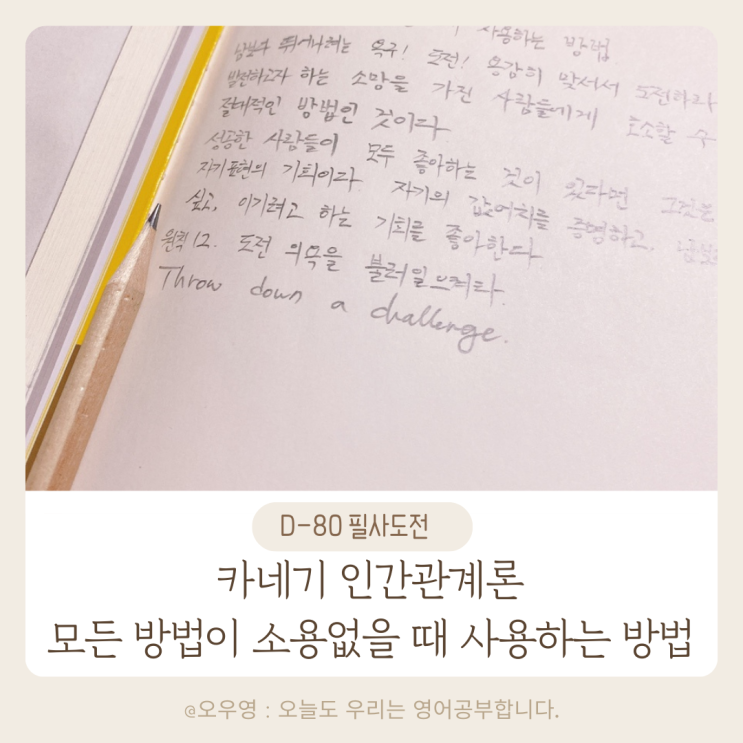 사용하는 방법
남보다 뛰어나려는 욕구! 도전! 용감히 맞서서 도전하라
발전하고자 하는 소망을 가진 사람들에게 호소할 수
절대적인 방법인 것이다
성공한 사람들이 모두 좋아하는 것이 있다면 그것은
자기표현의 기회이다 자기의 값어치를 증명하고,
싶고, 이기려고 하는 기회를 좋아한다
원칙 12. 도전 의욕을 불러일으켜라.
Throw down a challenge.
D-80 필사도전
카네기 인간관계론
모든 방법이 소용없을 때 사용하는 방법
@오우영 : 오늘도 우리는 영어공부합니다.